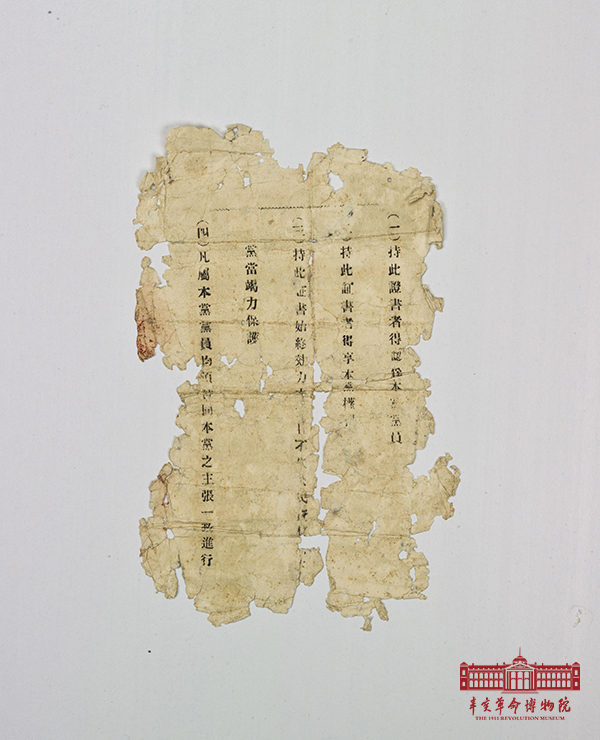 (一)持此證書者得認爲本黨黨員
(二)持此証書者得享本黨權
(三)持此証書始終効力本 不
黨當竭力保護
(四)凡屬本黨黨員均須 同本黨之主張一致進行
辛亥革命博物院
THE 1911 REVOLUTION MUSEUM